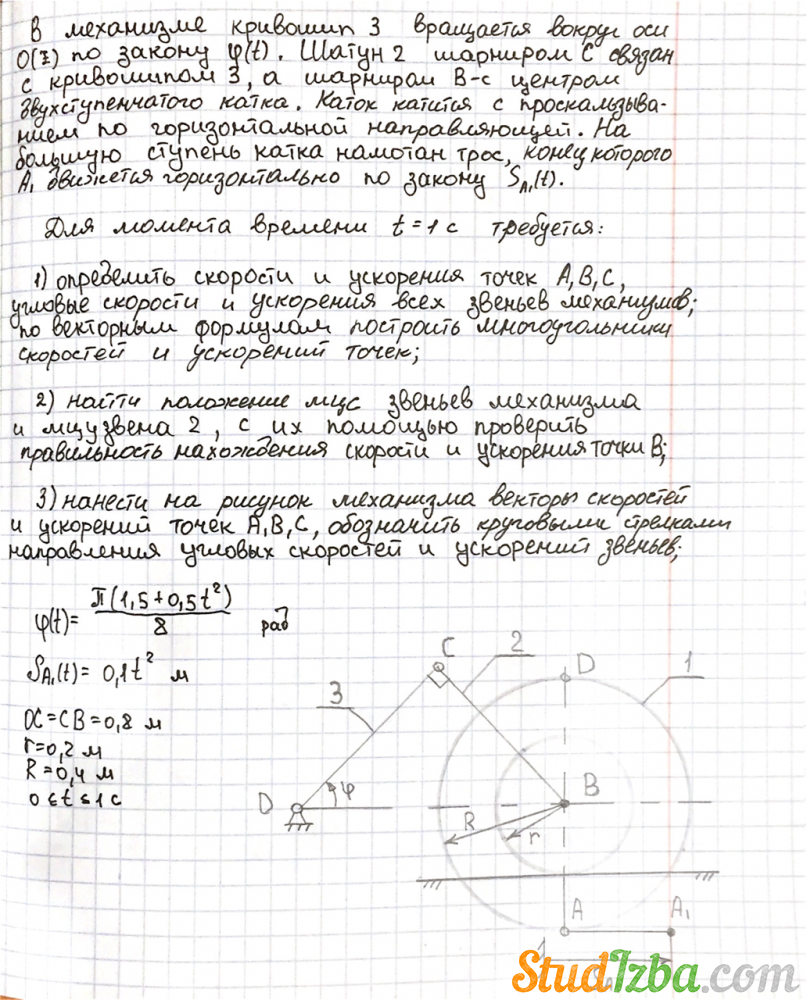 В механизме кривошип 3 вращается вокруг оси
O(z) по закону φ(t). Шатун 2 шарниром С связан
с кривошипом 3, а шарниром В-с центром
двухступенчатого катка. Каток катится с проскальзыва-
нием по горизонтальной направляющей. На
большую ступень катка намотан трос, конец которого
A₁ движется горизонтально по закону S_A₁(t).
Для момента времени t=1 с требуется:
1) определить скорости и ускорения точек A,B,C,
угловые скорости и ускорения всех звеньев механизмов;
по векторным формулам построить многоугольники
скоростей и ускорений точек;
2) найти положение мцс звеньев механизма
и мцу звена 2, с их помощью проверить
правильность нахождения скорости и ускорения точки В;
3) нанести на рисунок механизма векторы скоростей
и ускорений точек A,B,C, обозначить круговыми стрелками
направления угловых скоростей и ускорений звеньев;
φ(t)= π(1,5+0,5t²)/8 рад
S_A₁(t)= 0,1t² м
OC=CB=0,8 м
r=0,2 м
R=0,4 м
0≤t≤1 c
C
2
D
1
3
D
φ
B
R
r
A
A₁
StudIzba.com